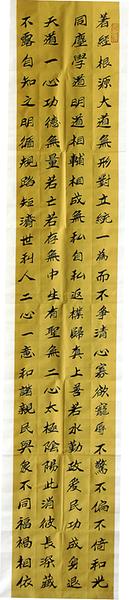 著經根源大道無形對立統一為而不爭清心寡欲寵辱不驚不偏不倚和光
同塵學道明道相輔相成無私自私返樸歸真上善若水勤政愛民功成身退
天道一心功德無量若亡若存無中生有聖無二心太極陰陽此消彼長深藏
不露自知之明循規蹈矩濟世利人二心一意和諧親民與眾不同福禍相依